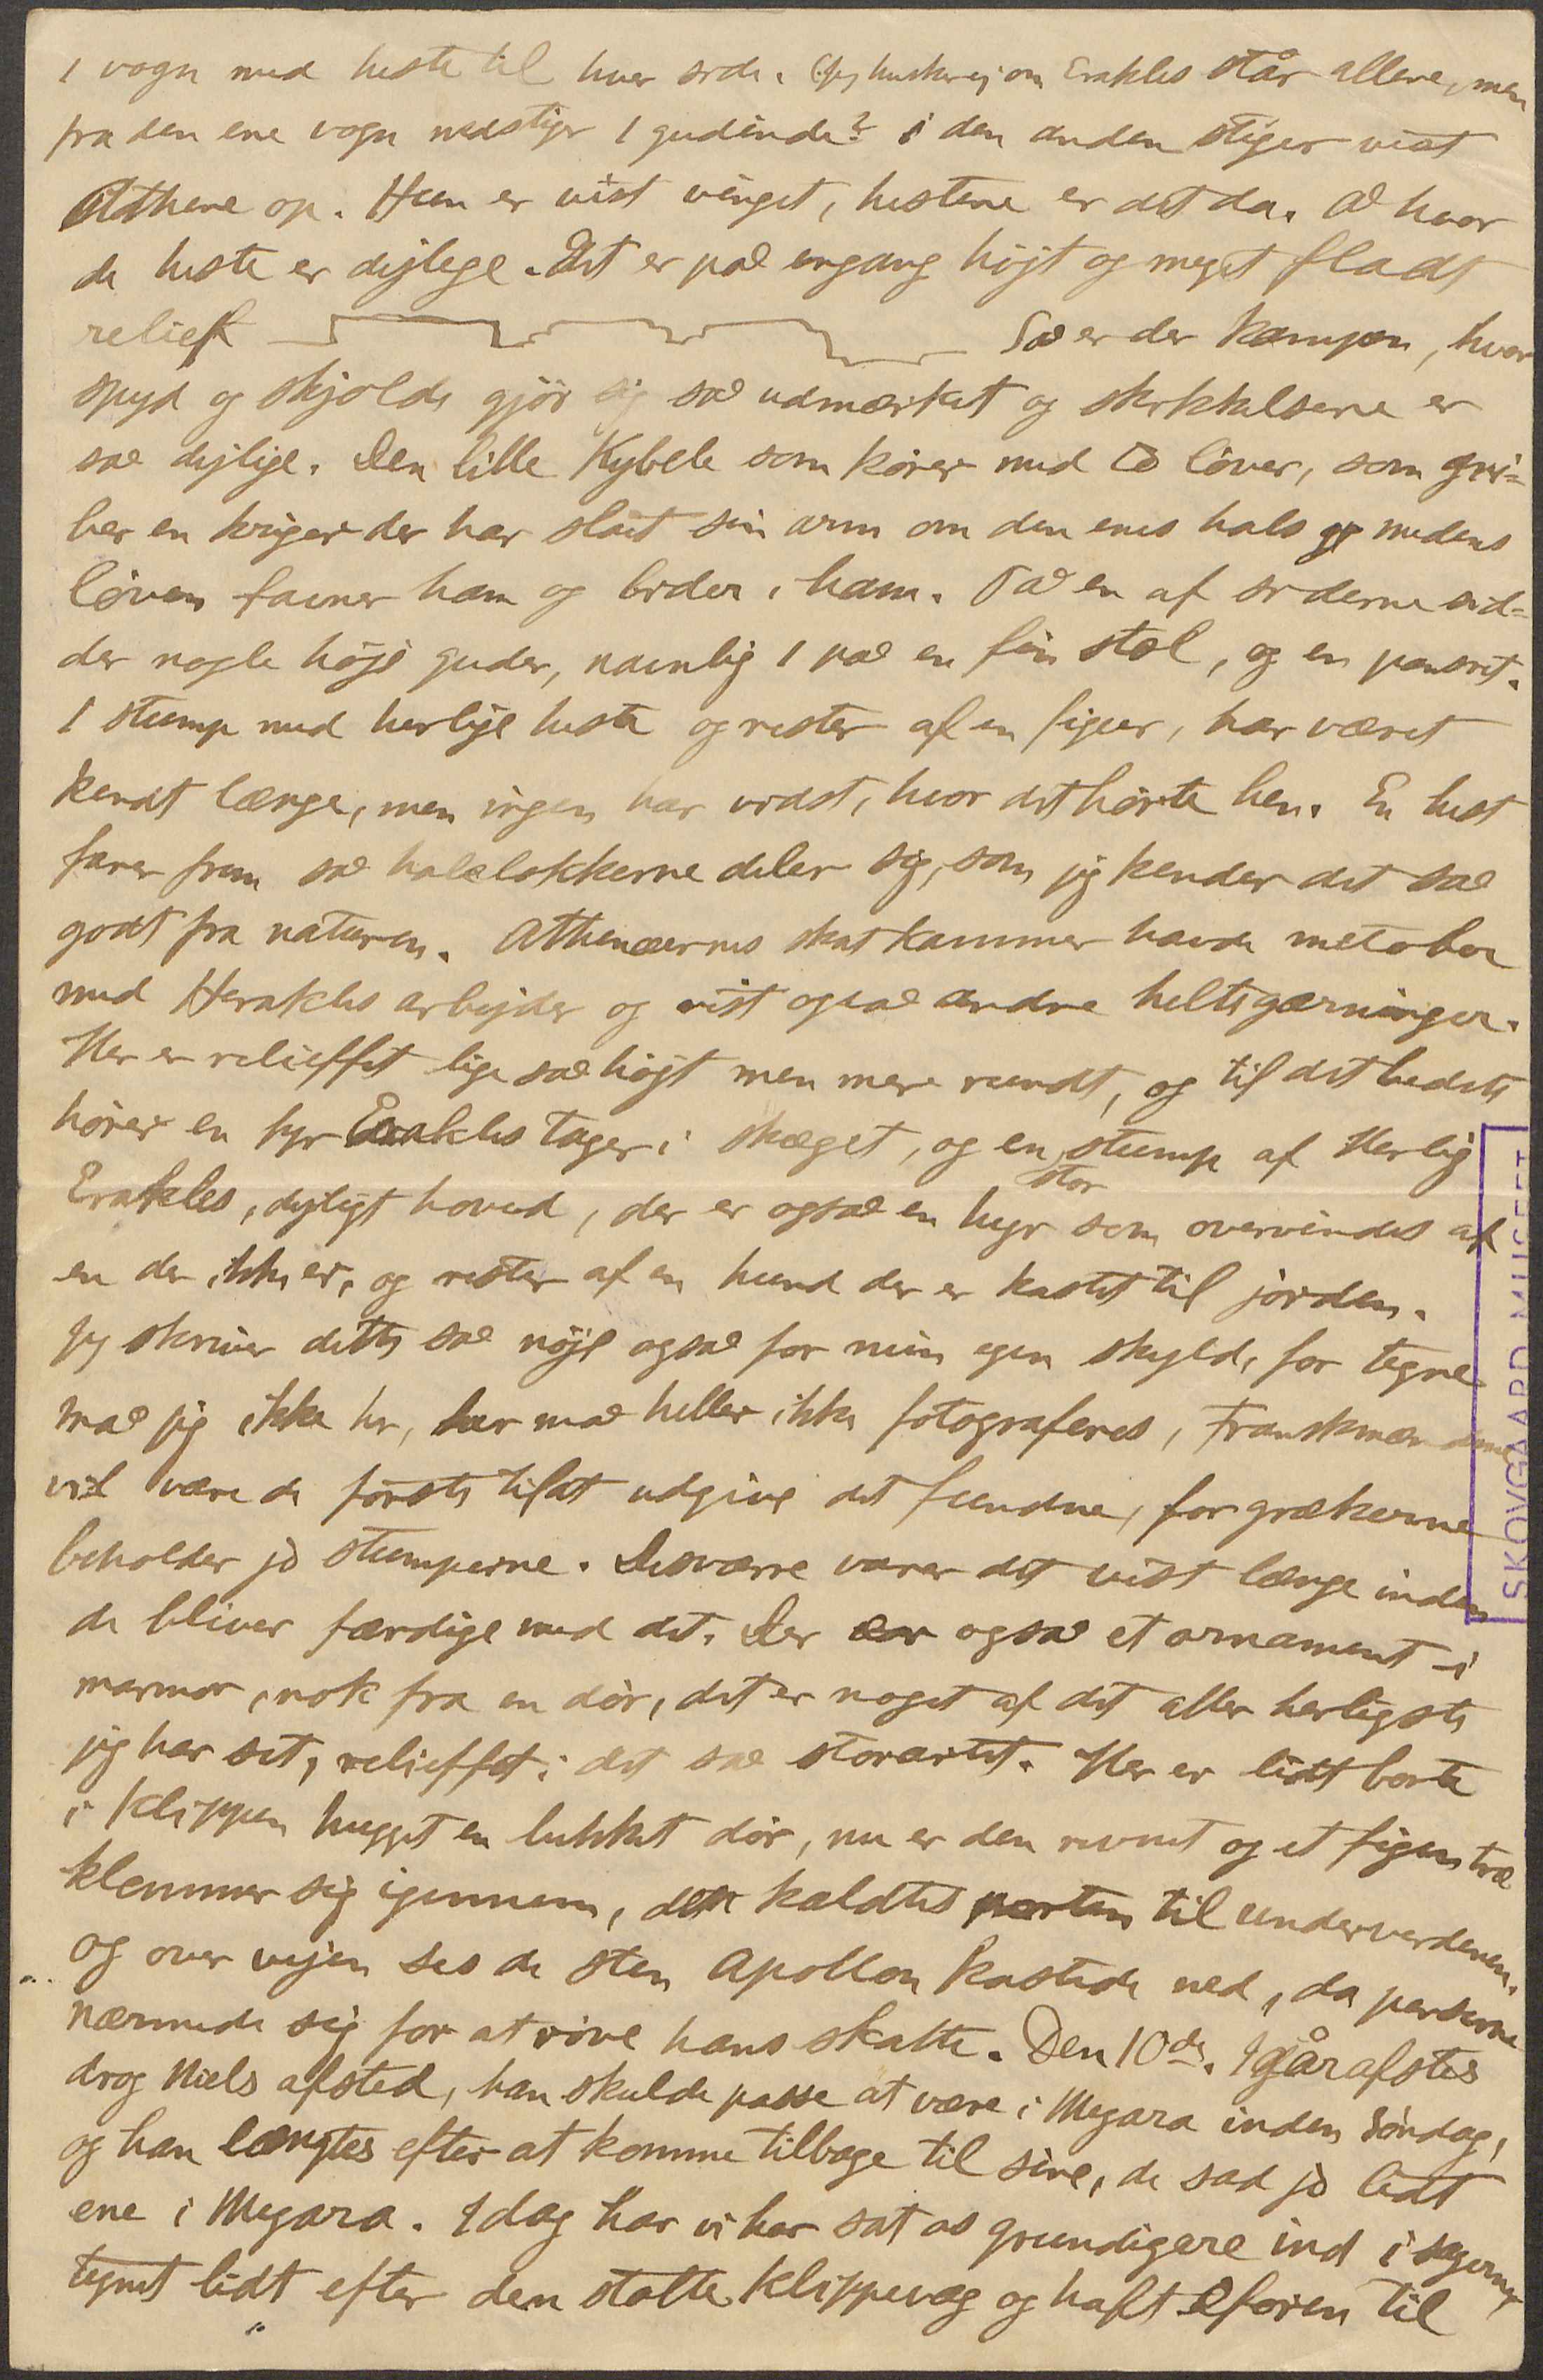 1 vogn med heste til hver side. (Jeg husker ej om Erakles står allene, men
fra den ene vogn nedstiger 1 gudinde? i den anden stiger vist
Athene op. Hun er vist vinget, hestene er det da. Å hvor
de heste er dejlige. Det er på engang højt og meget fladt
relief Så er der kampen, hvor
spyd og skjolde gjör sig så udmærket og skikkelserne er
så dejlige. Den lille Kybele som körer med to löver, som gri=
ber en kriger der har slået sin arm om den enes hals medens
löven favner ham og bider i ham. På en af siderne sid=
der nogle höje guder, navnlig 1 på en fin stol, og en
1 stump med herlige heste og rester af en figur, har været
kendt længe, men ingen har vidst, hvor det hörte hen. En hest
farer frem så halelokkerne deler sig, som jeg kender det så
godt fra naturen. Athenæernes skatkammer havde metober
med Herakles arbejder og vist også andre heltegærninger.
Her er relieffet lige så højt men mere rundt, og til det bedste
hörer en tyr Erakles tager i skæget, og en stump af Herlig
Erakles, dejligt hoved, der er også en stor tyr som overvindes af
en der ikke er, og rester af en hund der er kastet til jorden.
Jeg skriver dette så nöje også for min egen skyld, for tegne
må jeg ikke her, her må heller ikke fotograferes, Franskmændene
vil være de förste til at udgive det fundne, for grækerne
beholder jo stumperne. Desværre varer det vist længe inden
de bliver færdige med det. Der er også et ornament i
marmor, nok fra en dör, det er noget af det aller herligste
jeg har set, relieffet i det så storartet. Her er lidt borte
i klippen hugget en lukket dör, nu er den revnet og et figentræ
klemmer sig igennem, den kaldtes porten til underverdenen,
og over vejen ses de sten Apollon kastede ned, da perserne
nærmede sig for at röve hans skatte. Den 10de. Igår aftes
drog Niels afsted, han skulde passe at være i Megara inden Söndag,
og han længtes efter at komme tilbage til sine, de sad jo lidt
ene i Megara. Idag har vi her sat os grundigere ind i sagerne,
tegnet lidt efter den statte klippevæg og haft Eforen til
SKOVGAARD MUSEET